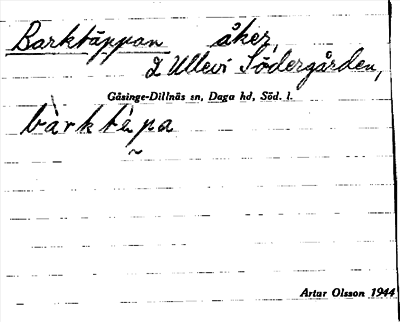 Barktäppan åker,
I Ullevi Södergården,
Gåsinge-Dillnäs sn, Daga hd, Söd. l.
bàrktèpa
Artur Olsson 1944